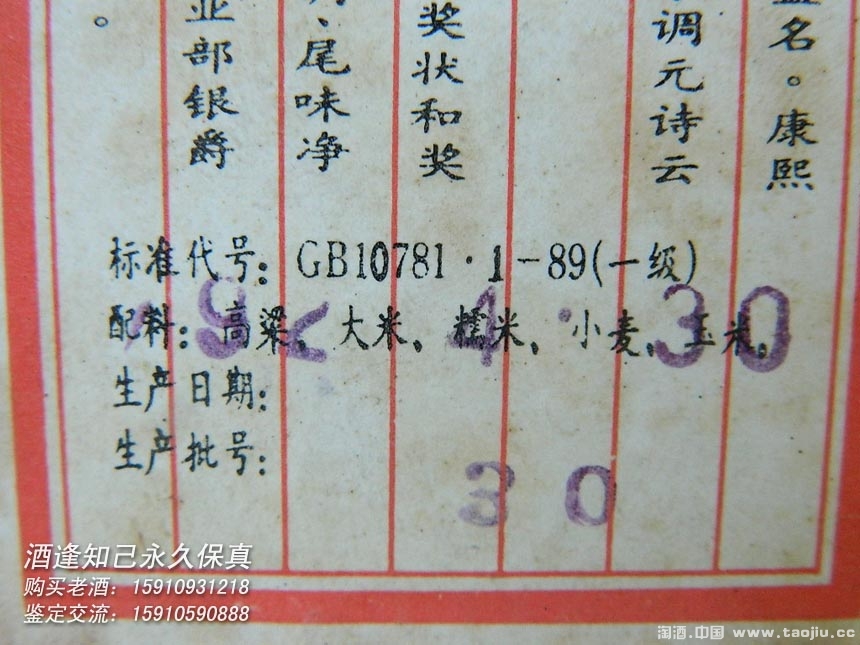 盖名。康熙
调元诗云
奖状和奖
、尾味净
业部银爵
。
标准代号：GB10781·1-89(一级)
配料：高粱、大米、糯米、小麦、玉米。
生产日期：
生产批号：
4·30
30
酒逢知己永久保真
购买老酒：15910931218
鉴定交流：15910590888
淘酒.中国 www.taojiu.cc